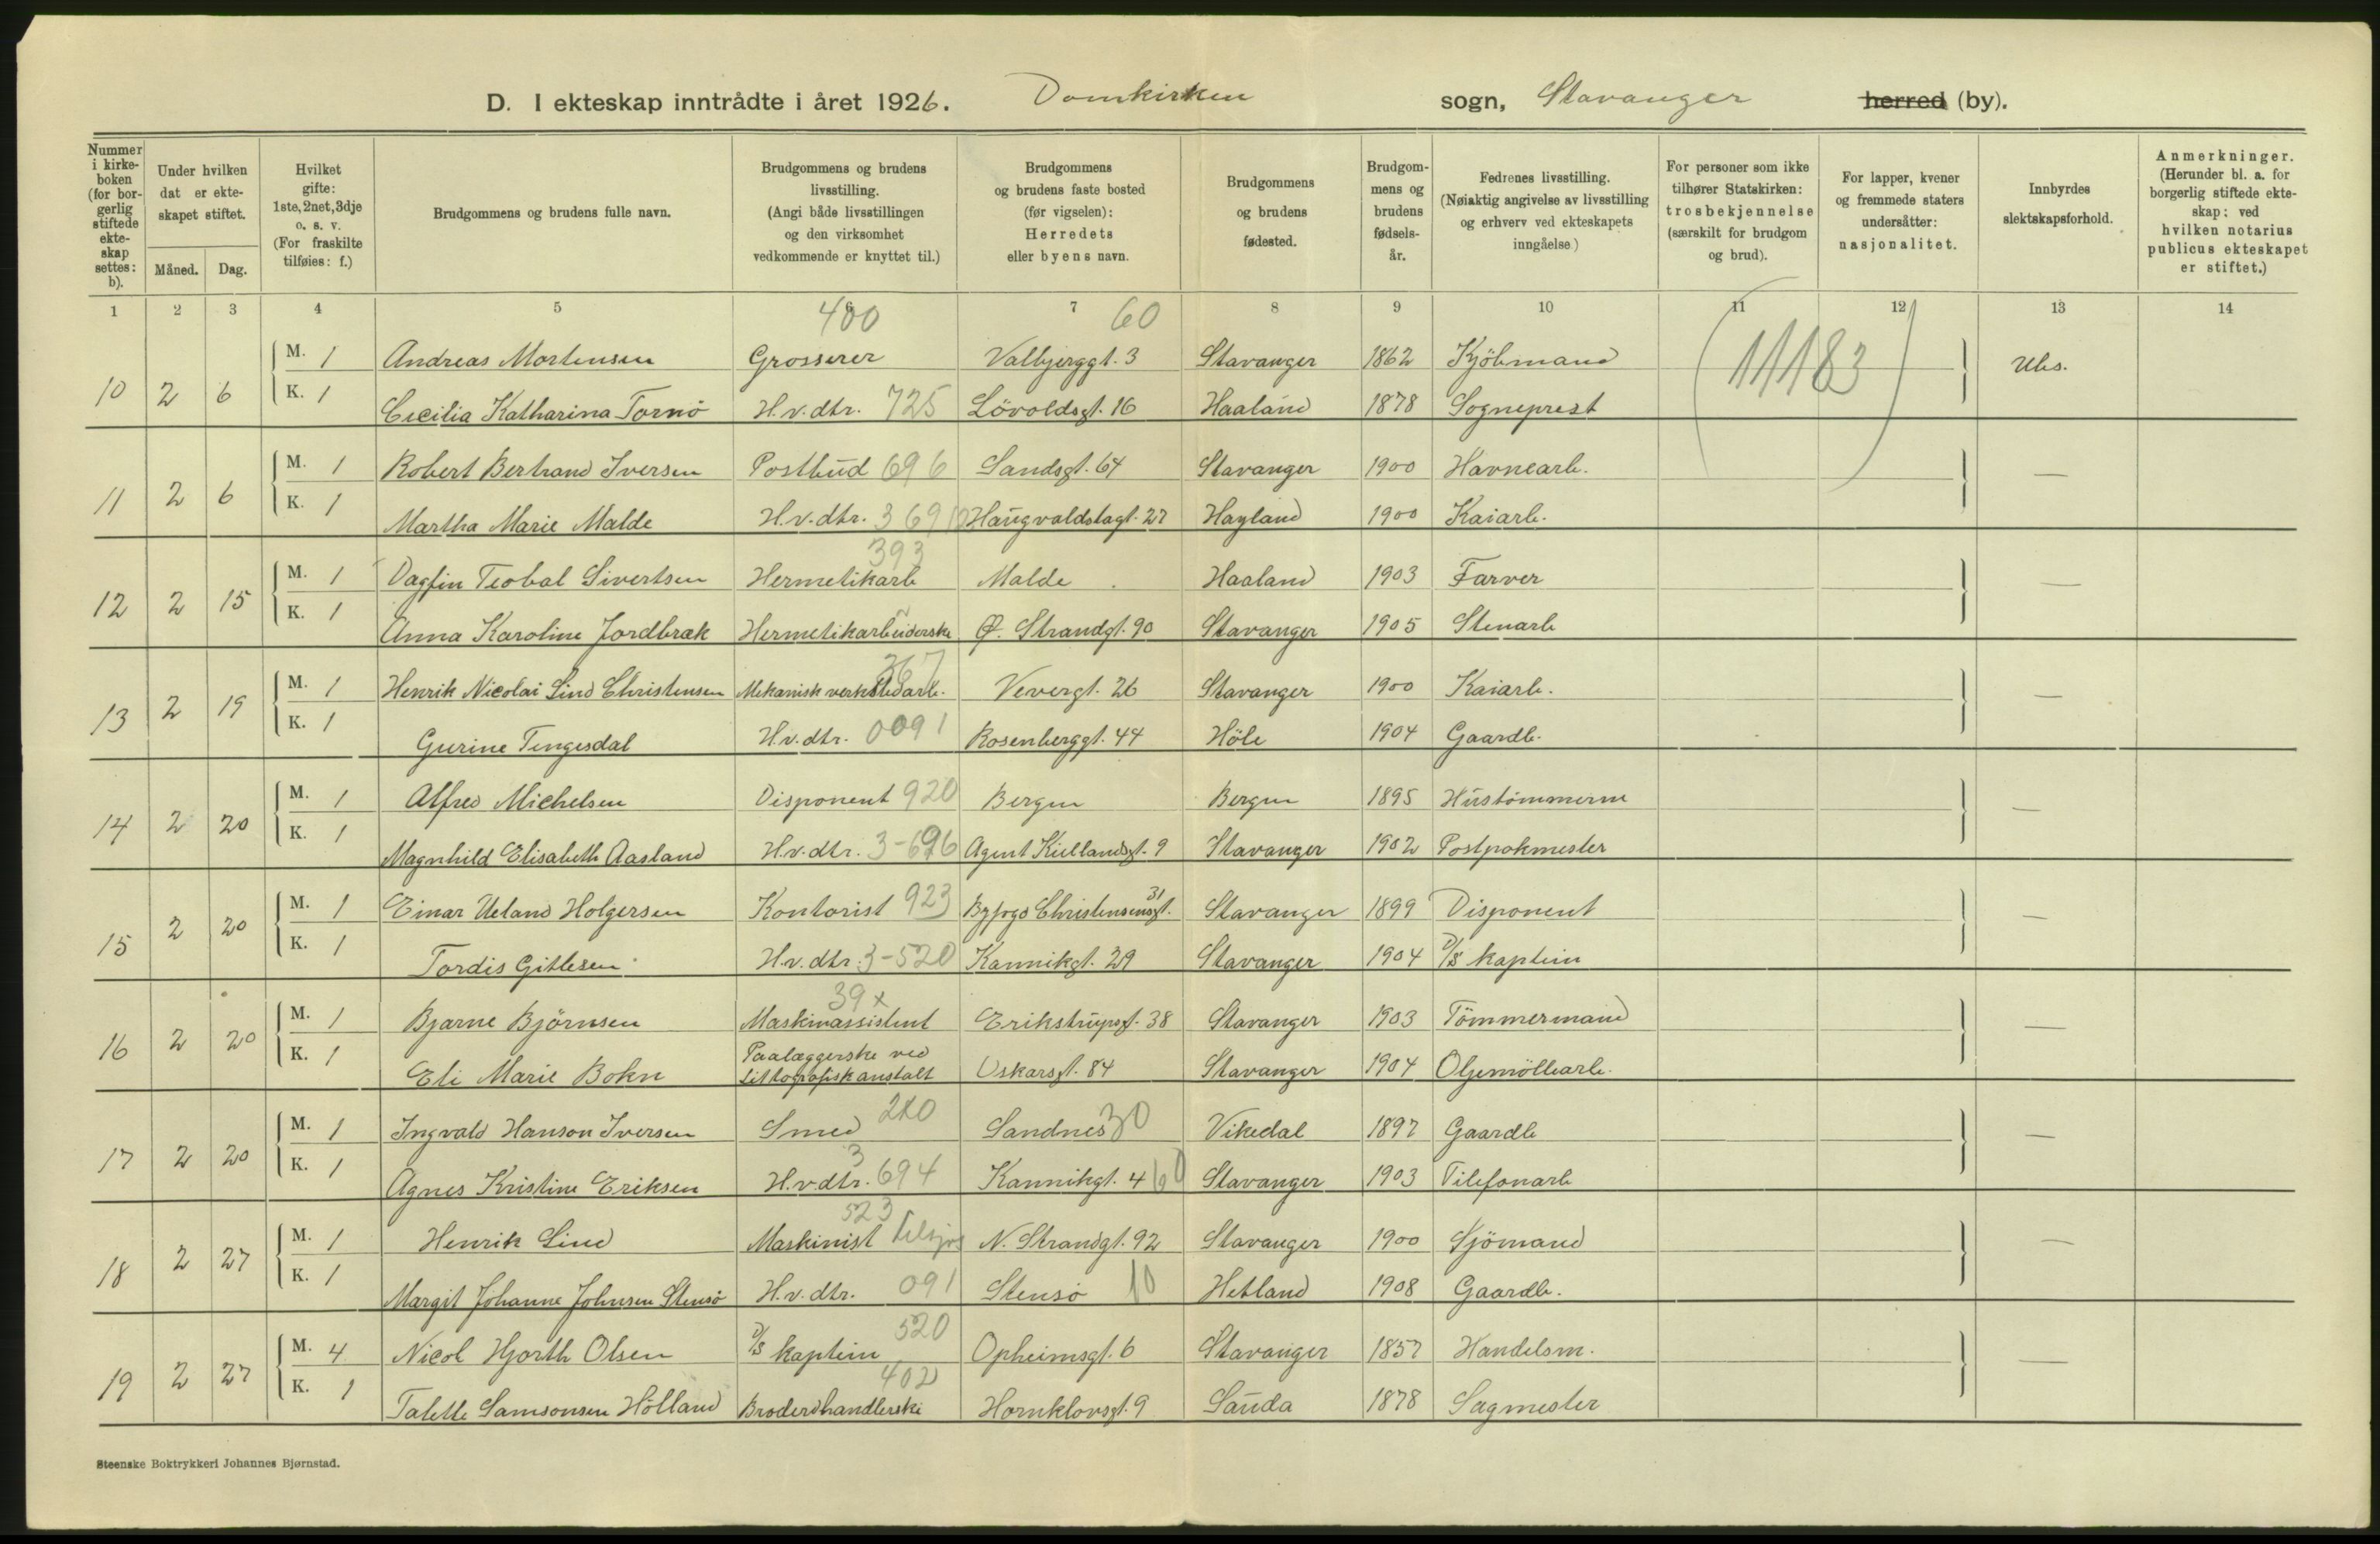 D. I ekteskap inntrådte i året 1926. Domkirken sogn, Stavanger herred (by).
Nummer i kirkeboken (for borgerlig stiftede ekteskap settes: b).
Under hvilken dat er ekteskapet stiftet.
Måned. Dag.
Hvilket gifte: 1ste, 2net, 3dje o. s. v. (For fraskilte tilføies: f.)
Brudgommens og brudens fulle navn.
Brudgommens og brudens livsstilling. (Angi både livsstillingen og den virksomhet vedkommende er knyttet til.)
Brudgommens og brudens faste bosted (før vigselen): Herredets eller byens navn.
Brudgommens og brudens fødested.
Brudgommens og brudens fødselsår.
Fedrenes livsstilling. (Nøiaktig angivelse av livsstilling og erhverv ved ekteskapets inngåelse)
For personer som ikke tilhører Statskirken: trosbekjennelse (særskilt for brudgom og brud).
For lapper, kvener og fremmede staters undersåtter: nasjonalitet.
Innbyrdes slektskapsforhold.
Anmerkninger. (Herunder bl. a. for borgerlig stiftede ekteskap: ved hvilken notarius publicus ekteskapet er stiftet.)
1 2 3 4 5 6 7 8 9 10 11 12 13 14
400 60
10 2 6 M. 1 Andreas Mortensen Grosserer Valbjerggt. 3 Stavanger 1862 Kjöbmand (11183) Ubs.
K. 1 Cecilia Katharina Tornö H.v.dtr. 725 Lövoldsgt. 16 Haaland 1878 Sogneprest
11 2 6 M. 1 Robert Bertrand Iversen Postbud 696 Sandsgt. 64 Stavanger 1900 Havnearb. —
K. 1 Martha Marie Malde H.v.dtr. 3 69 Haugvaldstagt. 27 Hayland 1900 Kaiarb.
393
12 2 15 M. 1 Dagfin Teobal Sivertsen Hermetikarb Malde Haaland 1903 Farver —
K. 1 Anna Karoline Jordbræk Hermetikarbeiderske Ø. Strandgt. 90 Stavanger 1905 Stenarb
367
13 2 19 M. 1 Henrik Nicolai Lind Christensen Mekanisk verkstedarb. Vevergt. 26 Stavanger 1900 Kaiarb. —
K. 1 Gurine Tengesdal H.v.dtr. 0091 Rosenberggt. 44 Höle 1904 Gaardb.
14 2 20 M. 1 Alfred Michelsen Disponent 920 Bergen Bergen 1895 Hustömmerme —
K. 1 Magnhild Elisabeth Aasland H.v.dtr. 3-696 Agent Kiellandsgt. 9 Stavanger 1902 Postpakmester
15 2 20 M. 1 Einar Ueland Holgersen Kontorist 923 Byfogd Christensensgt. 31 Stavanger 1899 Disponent —
K. 1 Tordis Gitlesen H.v.dtr. 3-520 Kannikgt. 29 Stavanger 1904 D/S kaptein
39x
16 2 20 M. 1 Bjarne Björnsen Maskinassistent Erikstrupsgt. 38 Stavanger 1903 Tömmermand —
K. 1 Eli Marie Bokn Paalæggerske ved Littografisk anstalt Oskarsgt. 84 Stavanger 1904 Oljemöllearb.
17 2 20 M. 1 Ingvald Hanson Iversen Smed 210 Sandnes 30 Vikedal 1897 Gaardb —
K. 1 Agnes Kristine Eriksen H.v.dtr. 3 694 Kannikgt. 4 60 Stavanger 1903 Telefonarb
523
18 2 27 M. 1 Henrik Lind Maskinist N. Strandgt. 92 Stavanger 1900 Sjömand —
K. 1 Margit Johanne Johnsen Stensö H.v.dtr. 091 Stensö 10 Hetland 1908 Gaardb.
19 2 27 M. 4 Nicol Hjorth Olsen D/S kaptein 520 Opheimsgt. 6 Stavanger 1857 Handelsm. —
402
K. 1 Talette Samsonsen Hölland Broderihandlerske Hornklovsgt. 9 Sauda 1878 Sagmester
Steenske Boktrykkeri Johannes Bjørnstad.